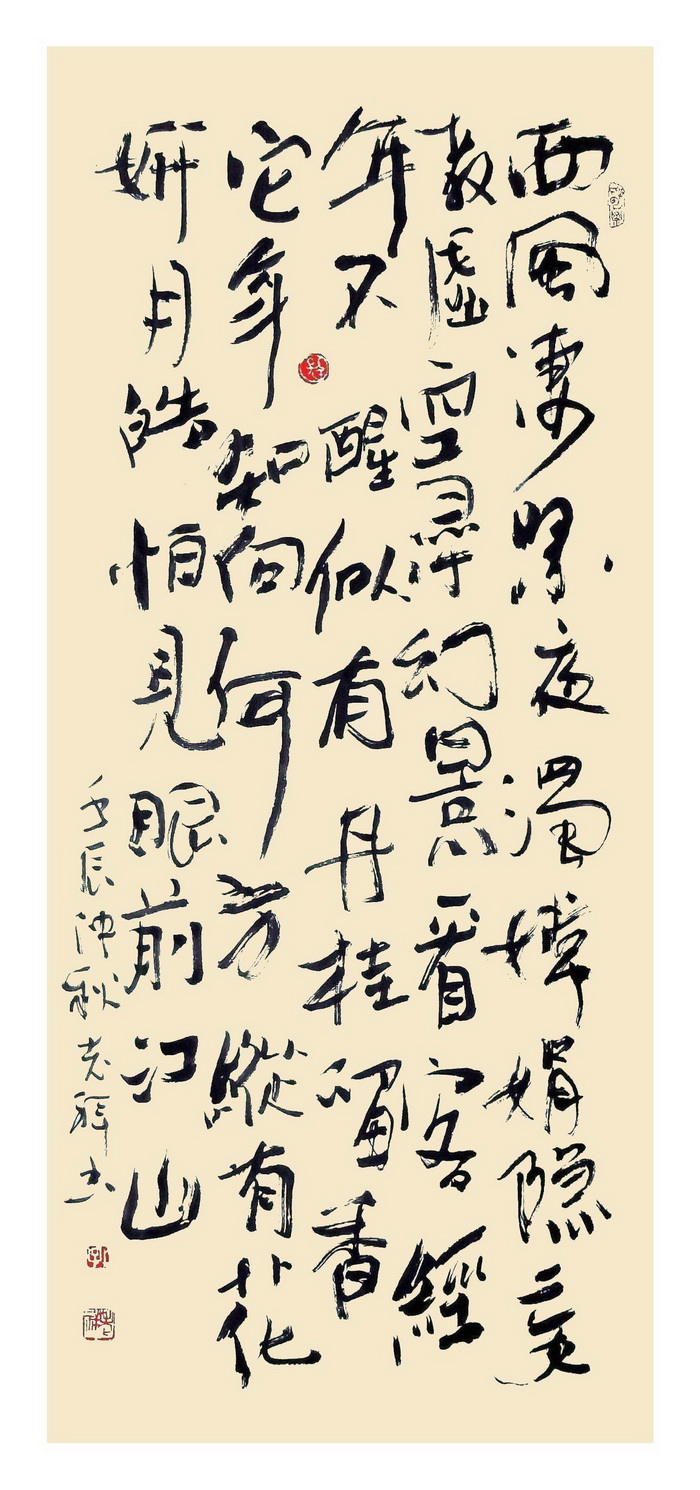 西風凄緊夜濁嬋娟隱莫
教虛空尋幻景看客經
年不醒似有丹桂留香
它年知向何方縱有花
姸月皓怕見眼前江山
壬辰仲秋老書